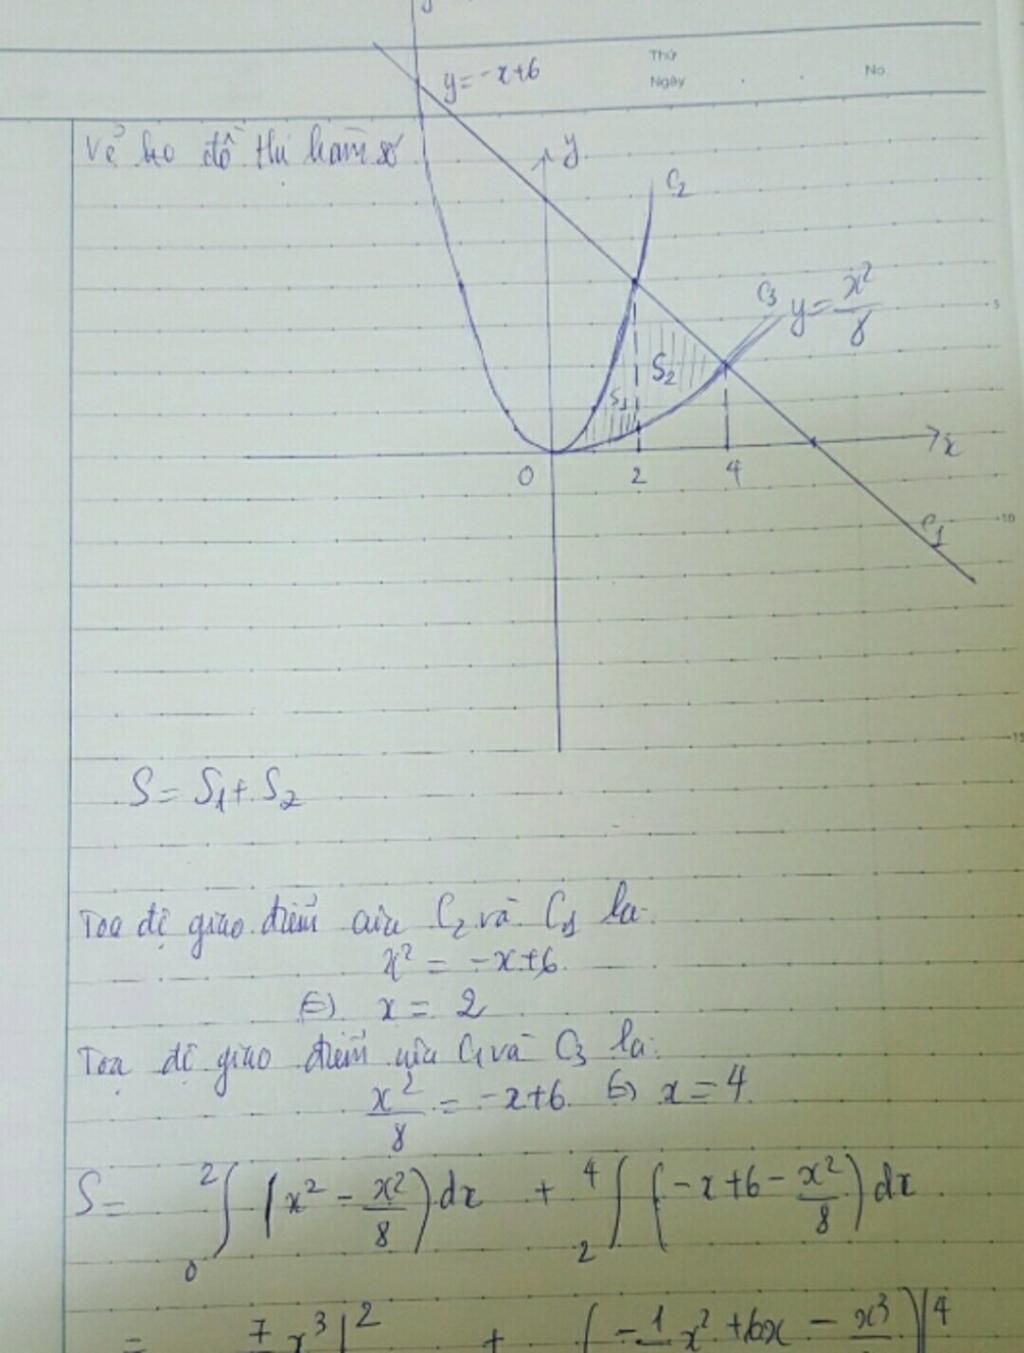 y
Thứ
Ngày
No
y=-x+6
Vẽ đồ thị hàm số
y
C2
C3
y = x²/8
5
S2
S1
x
0 2 4
C1
10
15
S = S1 + S2
Toạ độ giao điểm của C2 và C1 là:
x² = -x+6
⇔ x = 2
Toạ độ giao điểm của C1 và C3 là:
x²/8 = -x+6 ⇔ x = 4
S = ₀²∫ (x² - x²/8) dx + ₂⁴∫ (-x+6 - x²/8) dx
= 7 x³ |² + (-1 x² + 6x - x³)|⁴